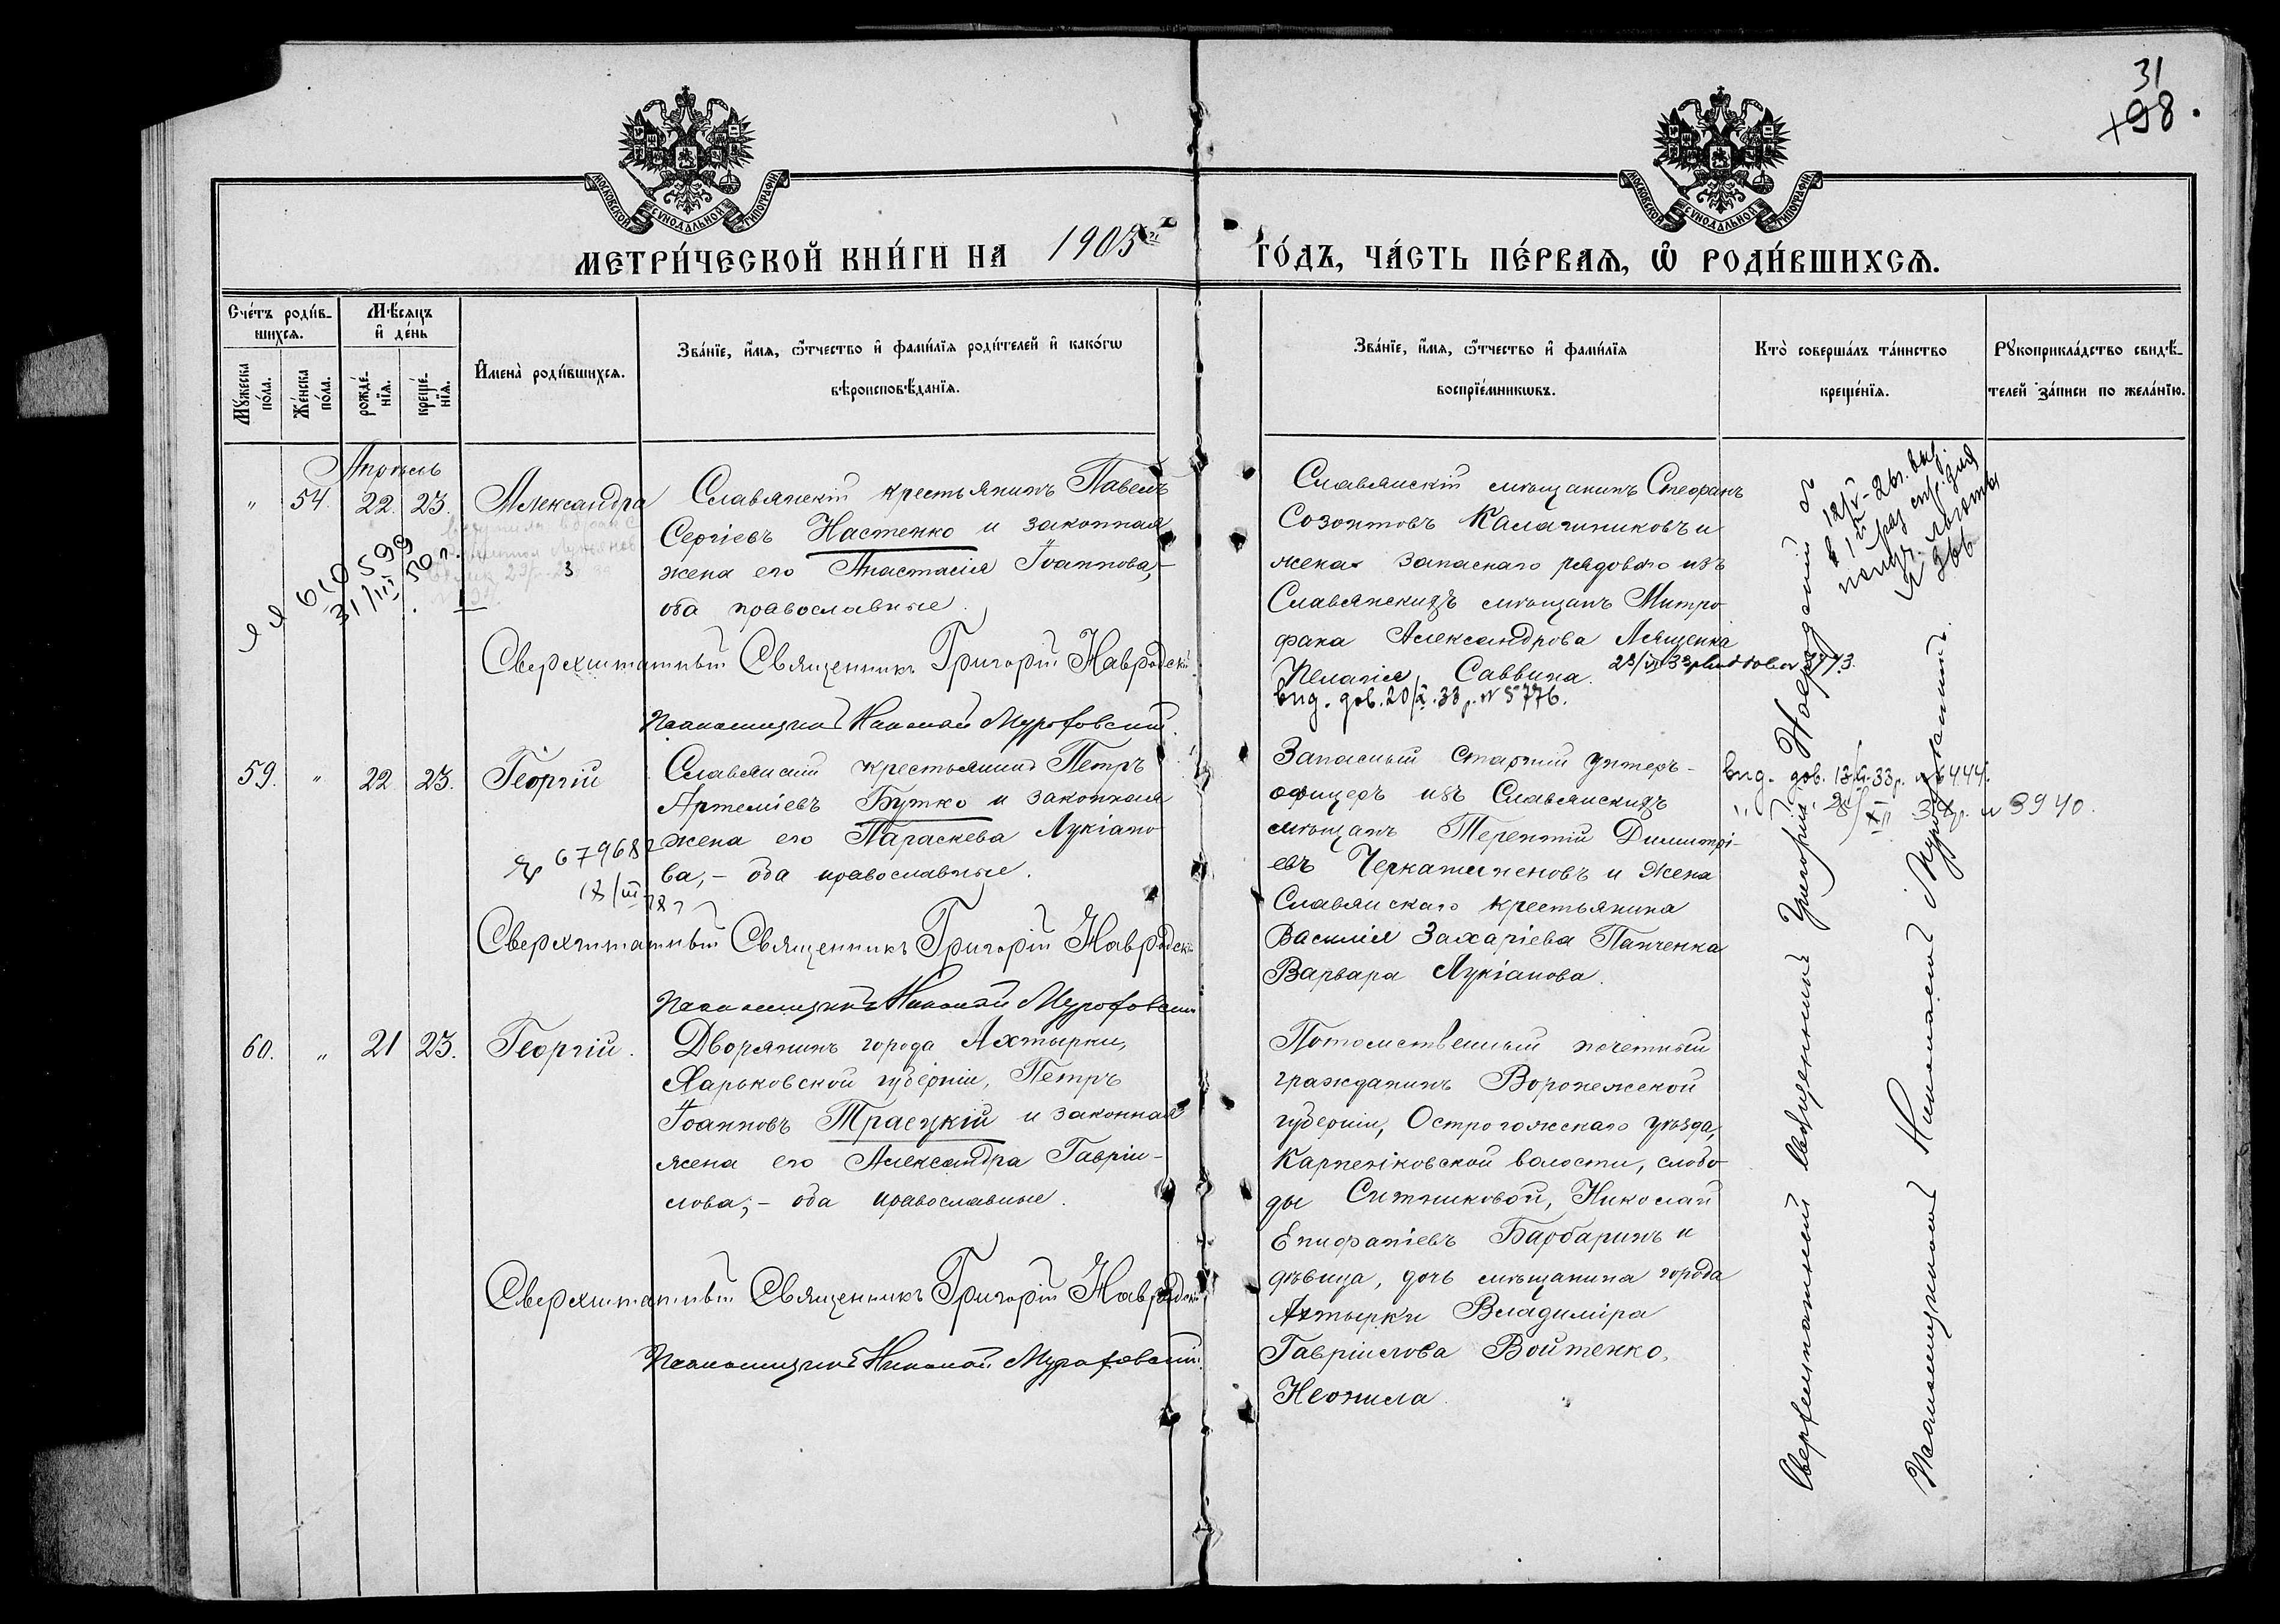 31
+98.
МОСКОВСКОЙ СѴНОДАЛЬНОЙ ТИПОГРАФІИ
МОСКОВСКОЙ СѴНОДАЛЬНОЙ ТИПОГРАФІИ
МЕТРИ́ЧЕСКОЙ КНИ́ГИ НА 1905
ГО́ДЪ, ЧА́СТЬ ПЕ́РВАѦ, Ѡ҆ РОДИ́ВШИХСѦ.
Сче́тъ роди́в-
шихсѧ.
Мꙋ́жеска по́ла.
Же́нска по́ла.
Мѣ́сѧцъ
и҆ де́нь
рожде́-
нїѧ.
креще́-
нїѧ.
И҆мена̀ роди́вшихсѧ.
Зва́нїе, и҆́мѧ, ѻ҆́тчество и҆ фами́лїѧ роди́телей и҆ како́гѡ
вѣроисповѣ́данїѧ.
Зва́нїе, и҆́мѧ, ѻ҆́тчество и҆ фами́лїѧ
воспрїе́мникѡвъ.
Кто̀ соверша́лъ та́инство
креще́нїѧ.
Рꙋкоприкла́дство свидѣ́-
телей за́писи по жела́нїю.
Апрѣль
" 54. 22. 23. Александра
Славянскій крестьянинъ Павелъ
Сергіевъ Настенко и законная
жена его Анастасія Іоаннова,-
оба православные.
610599
31/III 50 г.
Сверхштатный Священникъ Григорій Навродскій
Псаломщикъ Николай Мурофовскій.
Славянскій мѣщанинъ Стефанъ
Созонтовъ Калашниковъ и
жена запаснаго рядового изъ
Славянскихъ мѣщанъ Митро-
фана Александрова Лященка
Пелагія Саввина.
выд. дов. 20/X.33 г. № 5776.
59. " 22. 23. Георгій
Славянскій крестьянинъ Петръ
Артеміевъ Бутко и законная
жена его Параскева Лукіано-
ва,- оба православные.
679682
Сверхштатный Священникъ Григорій Навродскій
Псаломщикъ Николай Мурофовскій
Запасный старшій унтеръ-
офицеръ изъ Славянскихъ
мѣщанъ Терентій Димитрі-
евъ Черкашеновъ и жена
Славянскаго крестьянина
Василія Захаріева Панченка
Варвара Лукіанова.
3940.
60. " 21 23. Георгій.
Дворянинъ города Ахтырки,
Харьковской губерніи, Петръ
Іоанновъ Траецкій и законная
жена его Александра Гавріи-
лова,- оба православные.
Сверхштатный Священникъ Григорій Навродскій
Псаломщикъ Николай Мурофовскій.
Потомственный почетный
гражданинъ Воронежской
губерніи, Острогожскаго уѣзда,
Карпенковской волости, слобо-
ды Ситниковой, Николай
Епифаніевъ Барбаринъ и
дѣвица, дочь мѣщанина города
Ахтырки Владиміра
Гавріилова Войтенко,
Неонила.
Сверхштатный священникъ Григорій Навродскій
Псаломщикъ Николай Мурофовскій.